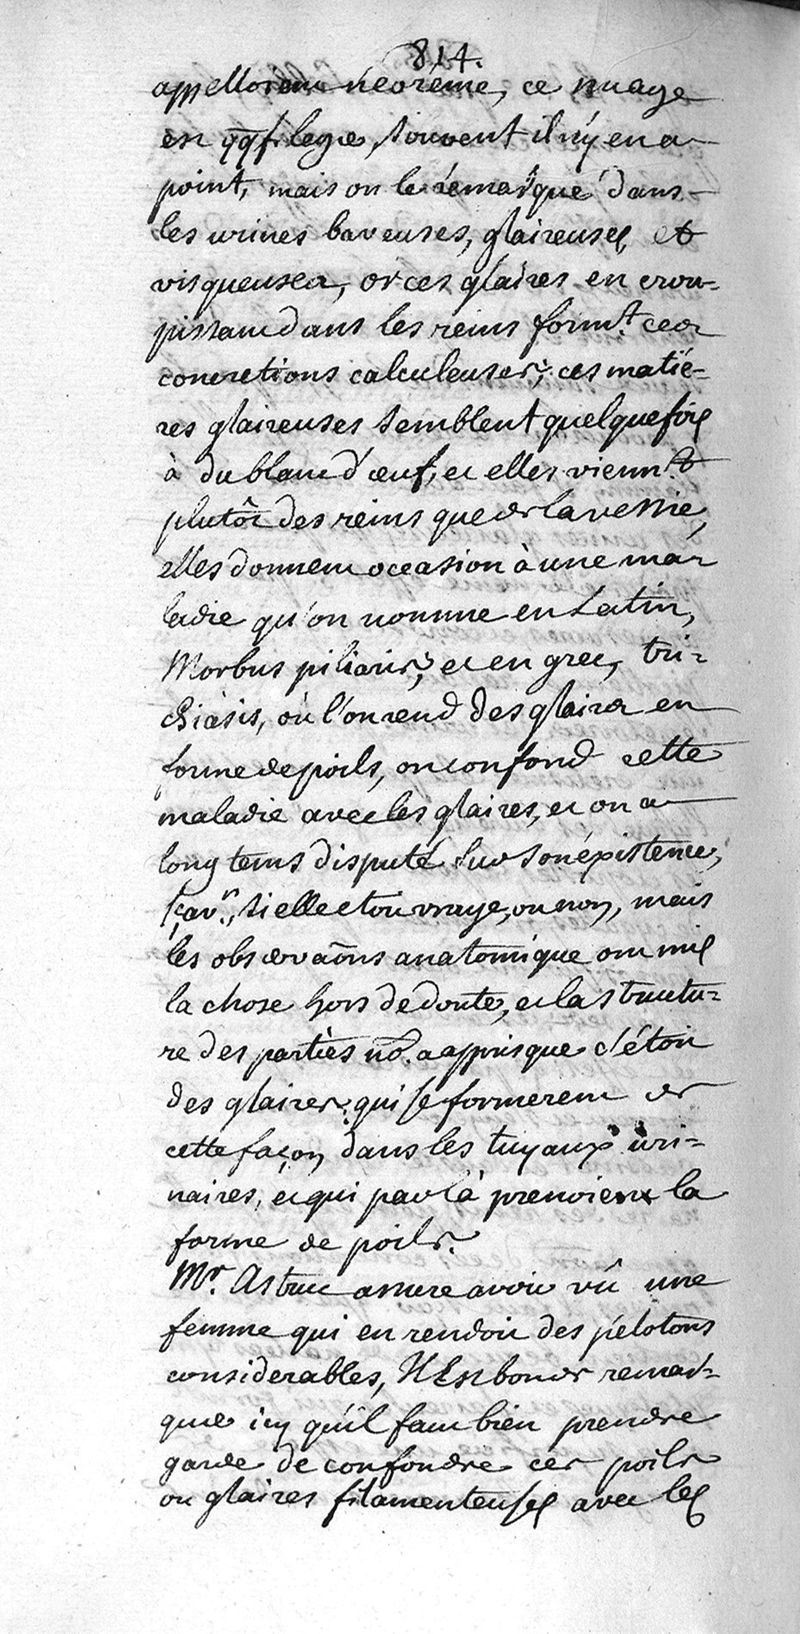 814.
appelloient néoréme, ce nuage
est qqf. leger, souvent il n'y en a
point, mais on le remarque dans
les urines baveuses, glaireuses et
visqueuses, or ces glaires en crou-
pissant dans les reins formt. ces
concretions calculeuses; ces matiè-
res glaireuses semblent quelquefois
à du blanc d'œuf, et elles viennt.
plutôt des reins que de la vessie,
elles donnent occasion à une ma-
ladie qu'on nomme en Latin,
Morbus piliaris, et en grec, tri-
chiasis, où l'on rend des glaires en
forme de poils, on confond cette
maladie avec les glaires, et on a
long tems disputé sur son éxistence,
sçavn., si elle etoit vraye, ou non, mais
les observaõns anatomique ont mis
la chose hors de doute, et la structu-
re des parties nõ. a appris que c'étoit
des glaires qui se formerent de
cette façon dans les tuyaux uri-
naires, et qui par là prenoient la
forme de poils.
Mr. Astruc assure avoir vû une
femme qui en rendoit des pelotons
considerables, Il Est bon de remar-
quer icy qu'il faut bien prendre
garde de confondre ces poils
ou glaires filamenteuses avec les